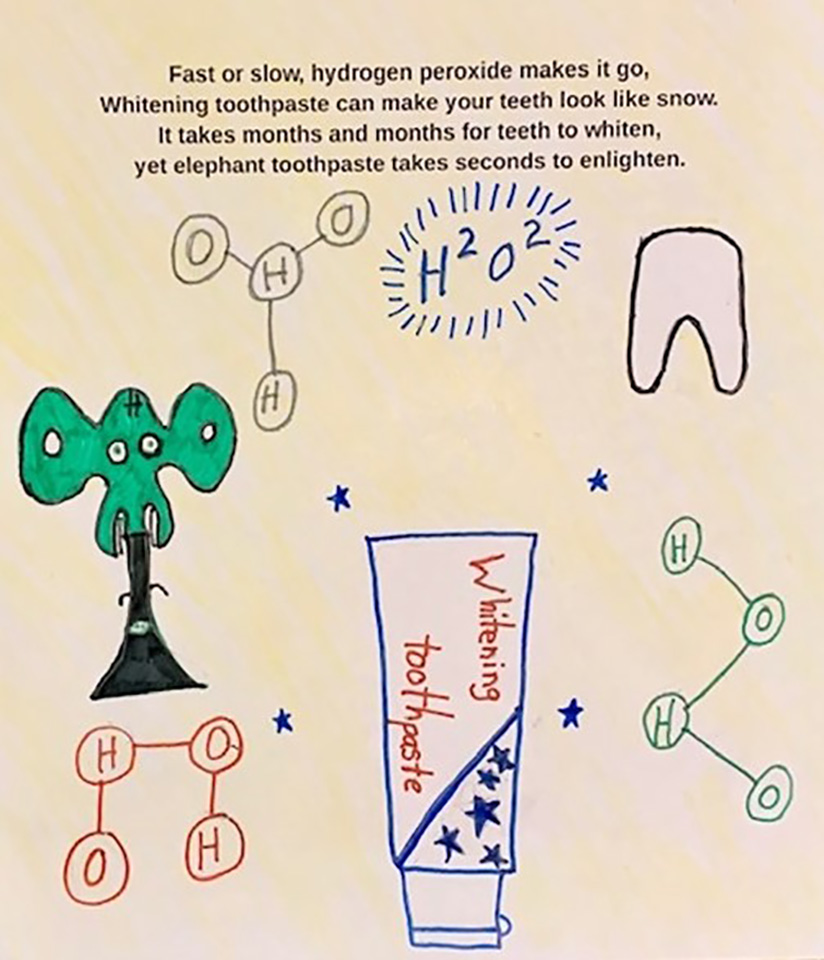 Fast or slow, hydrogen peroxide makes it go,
Whitening toothpaste can make your teeth look like snow.
It takes months and months for teeth to whiten,
yet elephant toothpaste takes seconds to enlighten.
O
O
H
H
H² O²
H
Whitening
toothpaste
H
O
H
O
H
O
O
H